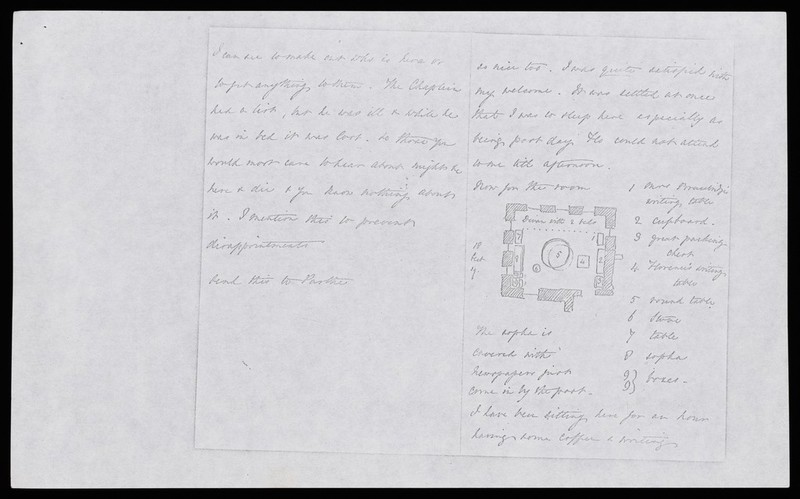 I can see to make out who is here or
to get anything to them. The Chaplain
had a list, but he was ill & while he
was in bed it was lost. so those you
would most care to hear about might be
here & die & you know nothing about
it. I mention this to prevent
disappointments
Send this to
as nice too. I was quite satisfied with
my welcome. It was settled at once
that I was to sleep here especially as
being post day Flo could not attend
to me till afternoon.
Now for the room
1 Mrs Bracebridge's
writing table
2 Cupboard.
3 great packing
chest
4 Florence's writing
table
5 round table
6 Stove
7 table
8 sopha
9 } boxes.
9 }
Divan with 2 beds
5
4
6
The sopha is
covered with
Newspapers just
come in by the post.
I have been sitting here for an hour
having some coffee & writing